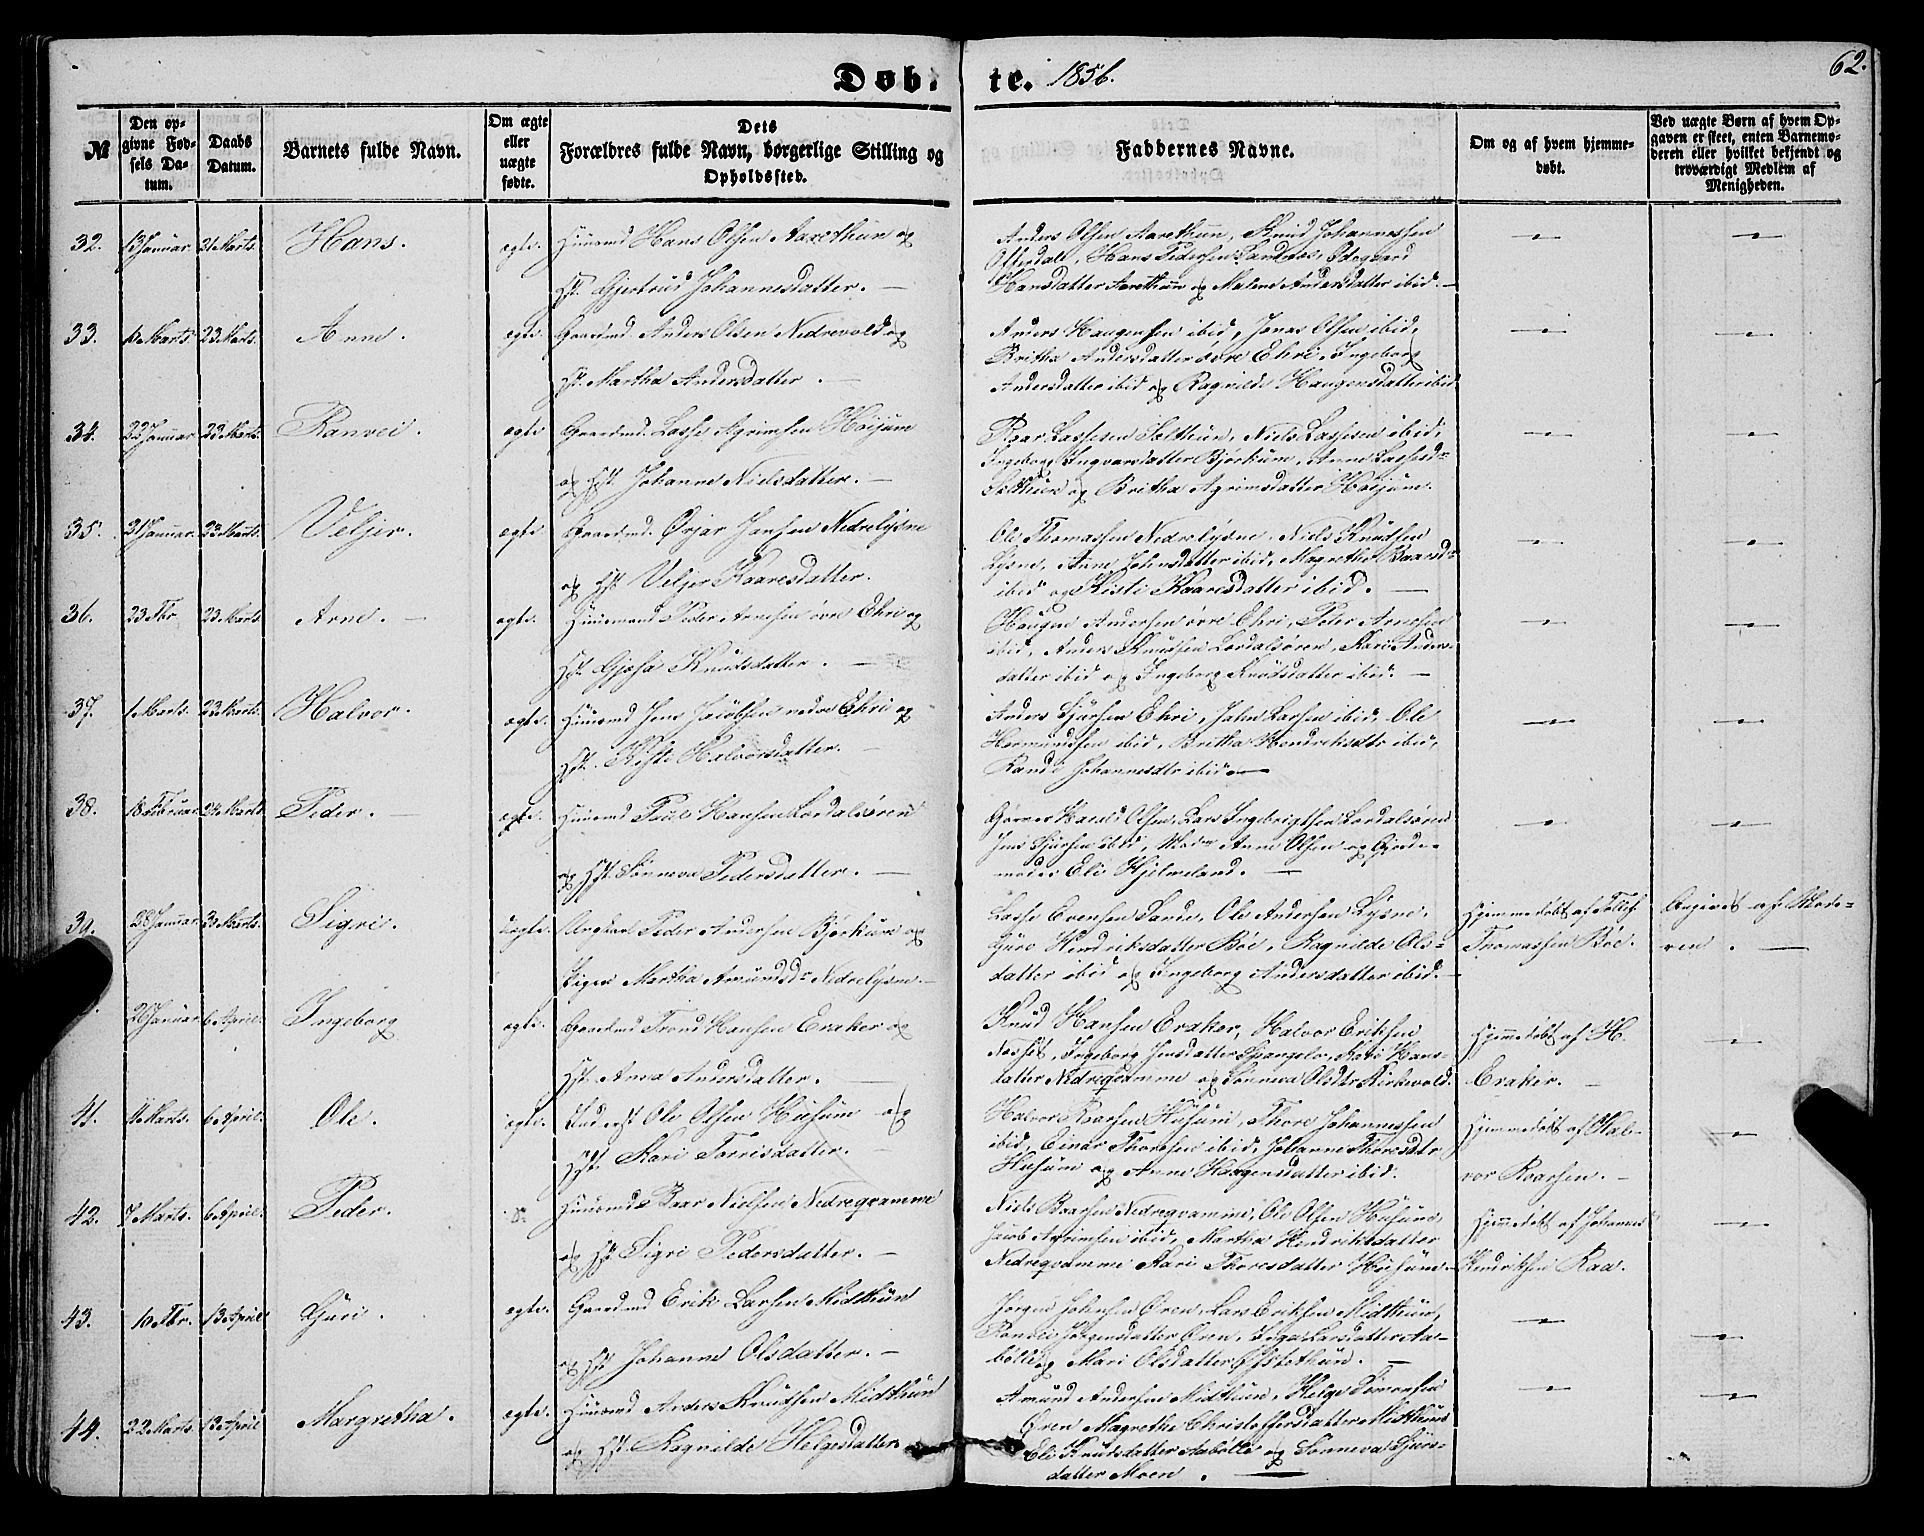 62.
Døb- te. 1856.
№
Den opgivne Fødsels Datum.
Daabs Datum.
Barnets fulde Navn.
Om ægte eller uægte fødte.
Dets Forældres fulde Navn, borgerlige Stilling og Opholdssted.
Faddernes Navne.
Om og af hvem hjemmedøbt.
Ved uægte Børn af hvem Opgaven er skeet, enten Barnemoderen eller hvilket bekjendt og troværdigt Medlem af Menigheden.
32. 13 Januar 21 Marts. Hans. ægte. Huusmd Hans Olsen Aarethun og
Hst. Gjertrud Johannesdatter. —
Anders Olsen Aarethun, Knud Johannessen
Offerdal, Hans Pedersen Sandnæs, Odegaard
Hansdatter Aarethun og Malene Andersdatter ibid. —
33. Marts 23 Marts. Anne. ægte. Gaardmd. Anders Olsen Nedrevold og
Hst. Martha Andersdatter. —
Anders Haugensen ibid, Jonas Olsen ibid,
Britha Andersdatter øvre Ehri, Ingeborg
Andersdatter ibid og Ragnilde Haugensdatter ibid
34. 22 Januar 23 Marts. Ranvei. ægte Gaardmd. Lasse Agrimsen Høijum
og Hst. Johanne Nielsdatter. —
Roar Lassesen Sælthun, Niels Lassesen ibid,
Ingeborg Ingvarsdatter Bjørkum, Anne Lassesd.
Sælthun og Britha Agrimsdatter Høijum.
35. 31 Januar 23 Marts. Veljer. ægte Gaardmd. Ørjar Jansen Nedrelysne
og Hst. Veljer Kaaresdatter.
Ole Thomassen Nedrelysne, Niels Knudsen
Lysne, Anne Johnsdatter ibid, Magrethe Baarsd.
ibid og Kisti Kaaresdatter ibid. —
36. 23 Fbr 23 Marts Arne. — ægte. Huusmand Peder Arnesen øvre Ehri og
Hst. Gjøsa Knudsdatter. —
Haugen Andersen øvre Ehri, Peter Arnesen
ibid, Anders Knudsen Lærdalsøren, Kari Anders-
datter ibid og Ingeborg Knudsdatter ibid. —
37. 1 Marts. 23 Marts. Halvor. ægte. Huusmd Jens Jacobsen nedre Ehri og
Hst. Kisti Halvorsdatter. —
Anders Sjursen Ehri, John Larsen ibid, Ole
Hermundsen ibid, Britha Hendriksdtr ibid,
Randi Johannesdtr ibid. —
38. 18 Februar 24 Marts Peder. — ægte. Huusmd Poul Hansen Lærdalsøren
og Hst. Sønneva Pedersdatter. —
Hans Olsen, Lars Ingebrigtsen Lærdalsøren
Jens Sjursen ibid, Madm Anne Olsen og Gjorde-
moder Eli Hjelmeland. —
39. 28 Januar 23 Marts. Sigri. uægte. Ungkarl Peder Andersen Bjørkum og
Pigen Martha Amundsdr Nedrelysne. —
Lasse Evensen Sande, Ole Andersen Lysne,
Guro Hendriksdatter Bøe, Ragnilde Ols-
datter ibid og Ingeborg Andersdatter ibid. —
Hjemmedøbt af Tollef
Thomassen Bøe.
Angivet af Mode-
ren. —
26 Januar 6 April. Ingeborg ægte. Gaardmd Trond Hansen Eraker og
Hst. Anna Andersdatter. —
Knud Hansen Eraker, Halvor Eriksen
Næsset, Ingeborg Jensdatter, Kari Hans-
datter Nedreqvamme og Sønneva Olsdtr Kirkevold.
Hjemmedøbt af H.
Eraker. —
41. Marts. 6 April. Ole. ægte. Inderst Ole Olsen Husum og
Hst. Kari Torrisdatter. —
Halvor Roarsen Husum, Thore Johannessen
ibid, Einar Thoresen ibid, Johanne Thoresdtr
Husum og Anne Haagensdatter ibid.
Hjemmedøbt af Hal-
vor Roarsen. —
42. 7 Marts. 6 April. Peder. Huusmd Baar Nielsen Nedreqvamme
og Hst. Sigri Pedersdatter. —
Niels Baarsen Nedreqvamme, Ole Olsen Husum,
Jacob Agrimsen ibid, Martha Hendriksdatter
Nedreqvamme Kari Thoresdatter Husum. —
Hjemmedøbt af Johannes
Hendriksen Raa.
43. 10 Fbr. 13 April Guri. ægte. Gaardmd Erik Larsen Midthun
og Hst. Johanne Olsdatter. —
Jørgen Johnsen Øren, Lars Eriksen Midthun,
Ranvei Jørgensdatter Øren, Inga Larsdatter Aa-
bølle og Mari Olsdatter Øfstethun. —
44. 22 Marts. 13 April Margretha. ægte. Huusmd Anders Knudsen Midthun
og Hst. Ragnilde Helgesdatter
Amund Andersen Midthun, Helge Simonsen
Øren Magrethe Christoffersdatter Midthun
Eli Knudsdatter Aabølle og Sønneva Sjurs-
datter Moen. —